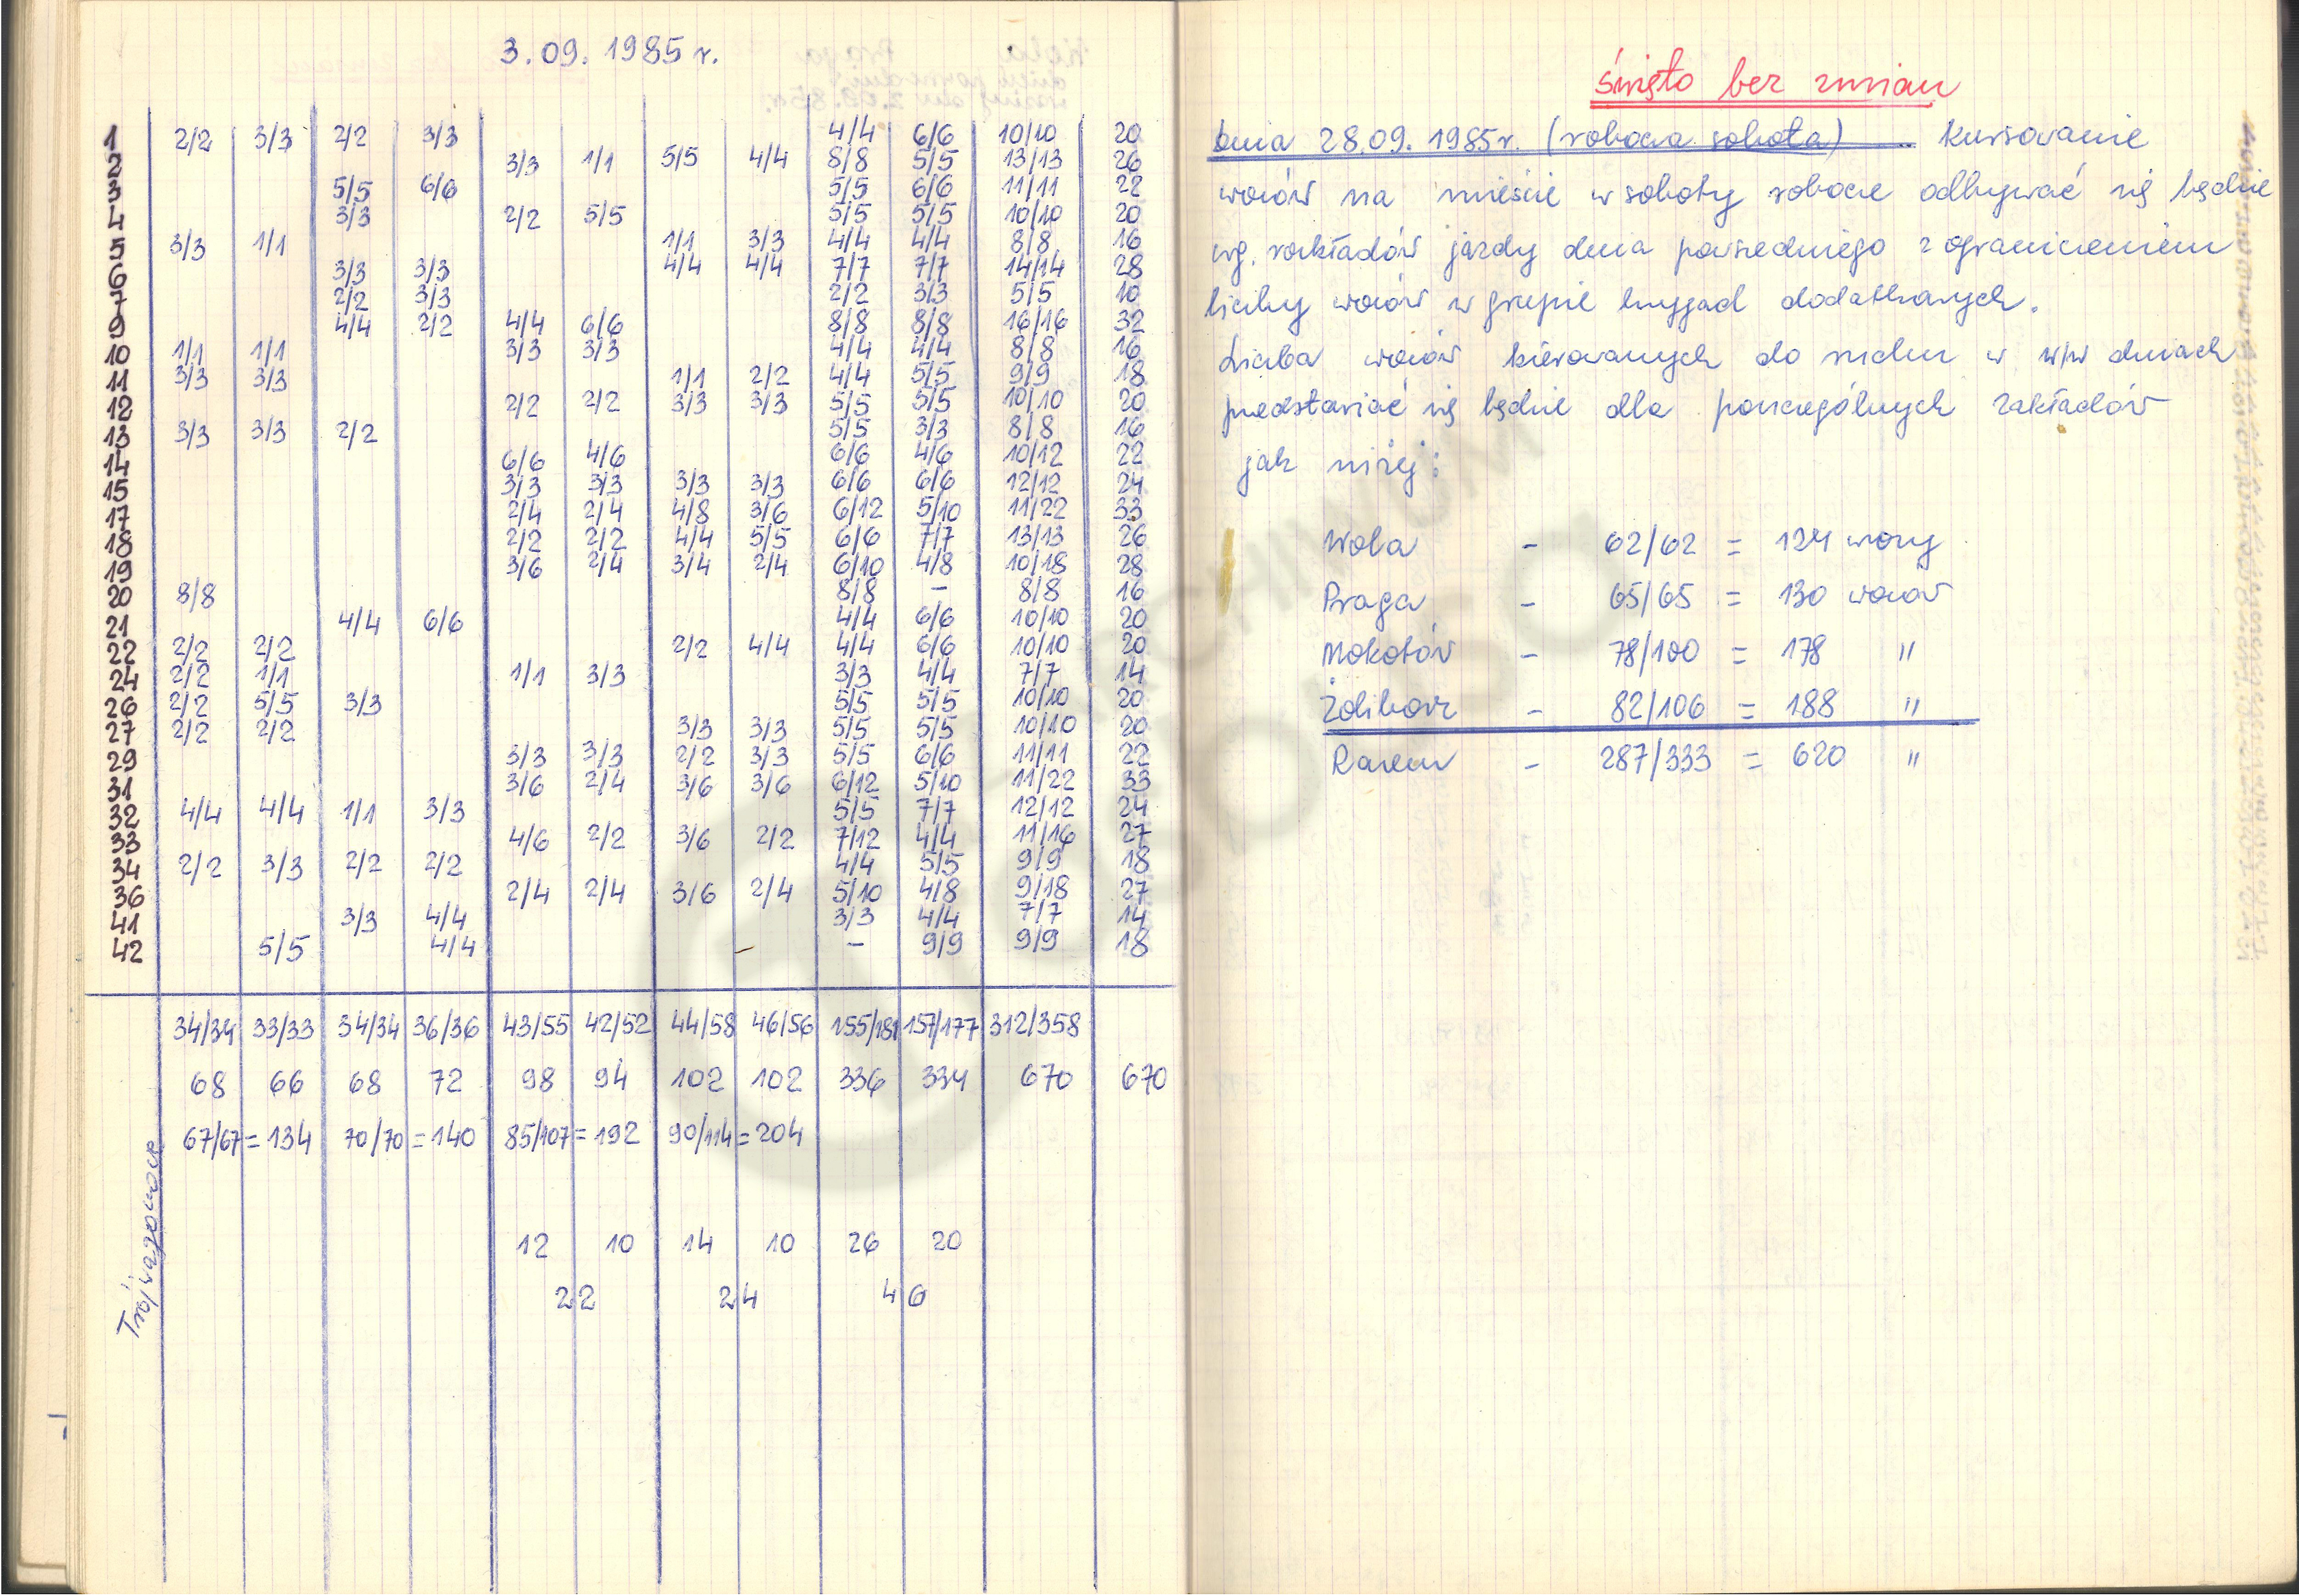 3.09.1985 r.
1 2/2 3/3 2/2 3/3 4/4 6/6 10/10 20
2 3/3 1/1 5/5 4/4 8/8 5/5 13/13 26
3 5/5 6/6 5/5 6/6 11/11 22
4 3/3 2/2 5/5 5/5 5/5 10/10 20
5 3/3 1/1 1/1 3/3 4/4 4/4 8/8 16
6 3/3 3/3 4/4 4/4 7/7 7/7 14/14 28
7 2/2 3/3 2/2 3/3 5/5 10
9 4/4 2/2 4/4 6/6 8/8 8/8 16/16 32
10 1/1 1/1 3/3 3/3 4/4 4/4 8/8 16
11 3/3 3/3 1/1 2/2 4/4 5/5 9/9 18
12 2/2 2/2 3/3 3/3 5/5 5/5 10/10 20
13 3/3 3/3 2/2 5/5 3/3 8/8 16
14 6/6 4/6 6/6 4/6 10/12 22
15 3/3 3/3 3/3 3/3 6/6 6/6 12/12 24
17 2/4 2/4 4/8 3/6 6/12 5/10 11/22 33
18 2/2 2/2 4/4 5/5 6/6 7/7 13/13 26
19 3/6 2/4 3/4 2/4 6/10 4/8 10/18 28
20 8/8 8/8 – 8/8 16
21 4/4 6/6 4/4 6/6 10/10 20
22 2/2 2/2 2/2 4/4 4/4 6/6 10/10 20
24 2/2 1/1 1/1 3/3 3/3 4/4 7/7 14
26 2/2 5/5 3/3 5/5 5/5 10/10 20
27 2/2 2/2 3/3 3/3 5/5 5/5 10/10 20
29 3/3 3/3 2/2 3/3 5/5 6/6 11/11 22
31 3/6 2/4 3/6 3/6 6/12 5/10 11/22 33
32 4/4 4/4 1/1 3/3 5/5 7/7 12/12 24
33 4/6 2/2 3/6 2/2 7/12 4/4 11/16 27
34 2/2 3/3 2/2 2/2 4/4 5/5 9/9 18
36 2/4 2/4 3/6 2/4 5/10 4/8 9/18 27
41 3/3 4/4 3/3 4/4 7/7 14
42 5/5 4/4 – 9/9 9/9 18
34/34 33/33 34/34 36/36 43/55 42/52 44/58 46/56 155/181 157/177 312/358
68 66 68 72 98 94 102 102 336 334 670 670
67/67 = 134 70/70 = 140 85/107 = 192 90/114 = 204
Trójwagonowe
12 10 14 10 26 20
22 24 46
święto bez zmian
Dnia 28.09.1985r. (robocza sobota) Kursowanie
wozów na mieście w soboty robocze odbywać się będzie
wg. rozkładów jazdy dnia powszedniego z ograniczeniem
liczby wozów w grupie brygad dodatkowych.
Liczba wozów kierowanych do ruchu w w/w dniach
przedstawiać się będzie dla poszczególnych zakładów
jak niżej:
Wola – 62/62 = 124 wozy
Praga – 65/65 = 130 wozów
Mokotów – 78/100 = 178 "
Żoliborz – 82/106 = 188 "
Razem – 287/333 = 620 "